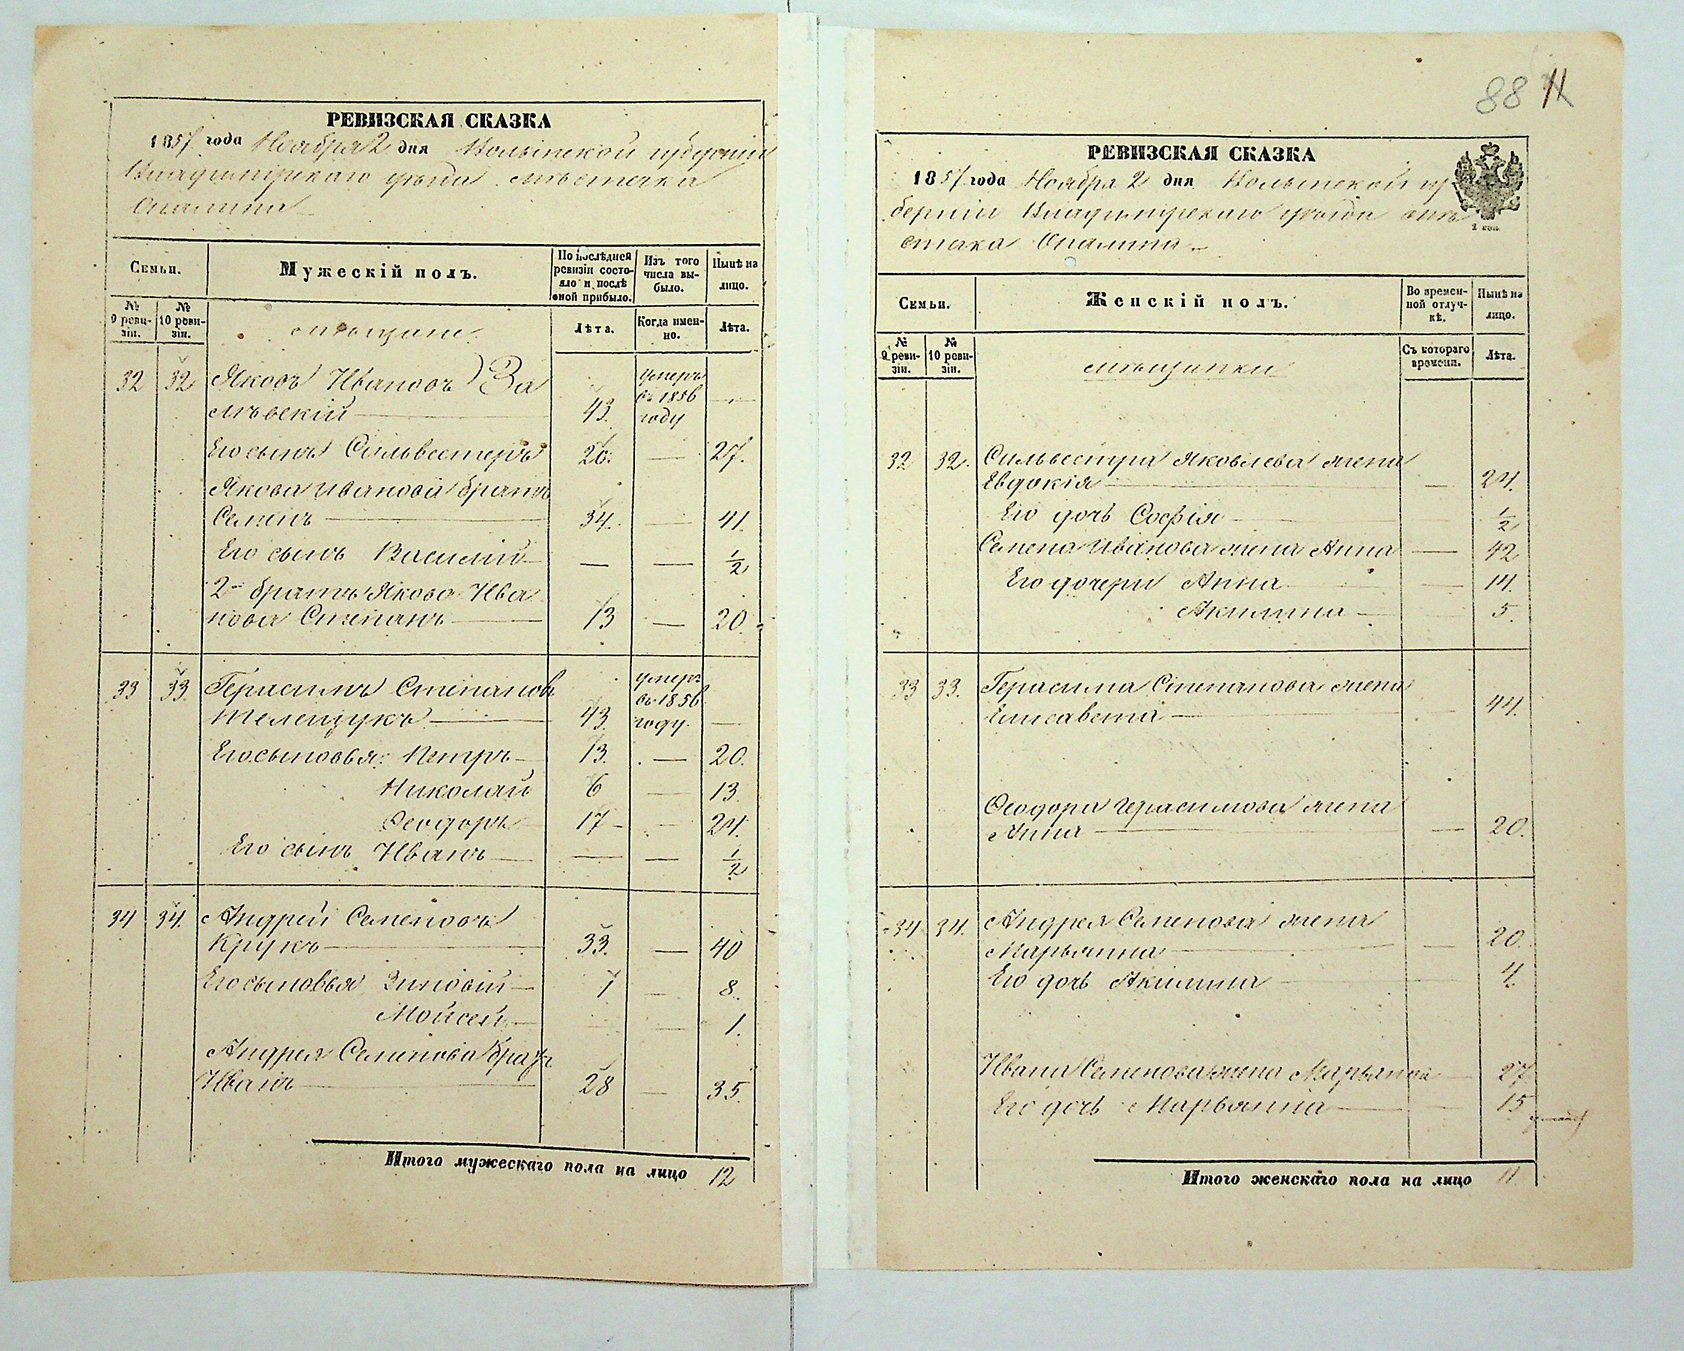 РЕВИЗСКАЯ СКАЗКА
1857 года Ноября 2 дня Волынской губернии
Владимирскаго уѣзда местечка
Опалина
Семьи.
Мужескій полъ.
По послѣдней ревизіи состояло и послѣ оной прибыло.
Изъ того числа выбыло.
Нынѣ на лицо.
№ 9 ревизіи.
№ 10 ревизіи.
мѣщане
Лѣта.
Когда именно.
Лѣта.
32 32 Яковъ Ивановъ За умеръ въ 1856 году
лѣвскій 43. —
Его сынъ Сильвестеръ 20. — 27.
Якова Иванова братъ
Семенъ 34. — 41.
Его сынъ Василій — — 1/2
2й братъ Якова Ива
нова Степанъ 13 — 20.
33 33 Герасимъ Степановъ умеръ въ 1856 году.
Телещукъ 43. —
Его сыновья: Петръ 13. — 20.
Николай 6 — 13.
Ѳеодоръ 17 — 24.
Его сынъ Иванъ — — 1/2
34 34. Андрей Семеновъ
Крукъ 33. — 40
Его сыновья Зиновій 1 — 8.
Мойсей — 1.
Андрея Семенова братъ
Иванъ 28 — 35.
Итого мужескаго пола на лицо 12
88 11
РЕВИЗСКАЯ СКАЗКА
1857 года Ноября 2 дня Волынской гу
берніи Владимирскаго уѣзда мѣ
стечка Опалина
2 коп.
Семьи.
Женскій полъ.
Во временной отлучкѣ.
Нынѣ на лицо.
№ 9 ревизіи.
№ 10 ревизіи.
мѣщанки
Съ котораго времени.
Лѣта.
32 32. Сильвестра Яковлева жена
Евдокія — 24.
Его дочь Софія 1/2
Семена Иванова жена Анна — 42
Его дочери Анна — 14.
Акилина — 5.
33 33. Герасима Степанова жена
Елисавета — 44.
Ѳеодора Герасимова жена
Анна — 20.
34 34. Андрея Семенова жена
Марьянна — 20.
Его дочь Акилина — 4.
Ивана Семенова жена Марьянна — 27
Его дочь Марьянна — 15
Итого женскаго пола на лицо 11.